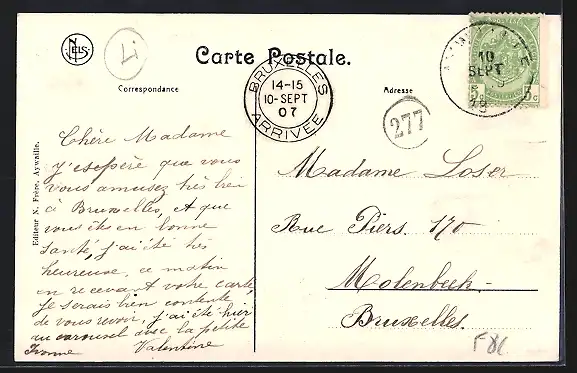 NELS
Li
Carte Postale.
Correspondance
Adresse
BRUXELLES
14-15
10-SEPT
07
ARRIVÉE
10
SEPT
5c 5c
277
Editeur N. Frère, Aywaille.
Chère Madame
J'espère que vous
vous amusez très bien
à Bruxelles, et que
vous êtes en bonne
santé, j'ai été très
heureuse, ce matin
en recevant votre carte,
Je serais bien contente
de vous revoir, j'ai été hier
au carousel avec la petite
Yvonne Valentine
Madame Loser
Rue Piers. 170
Molenbeek.-
Bruxelles.